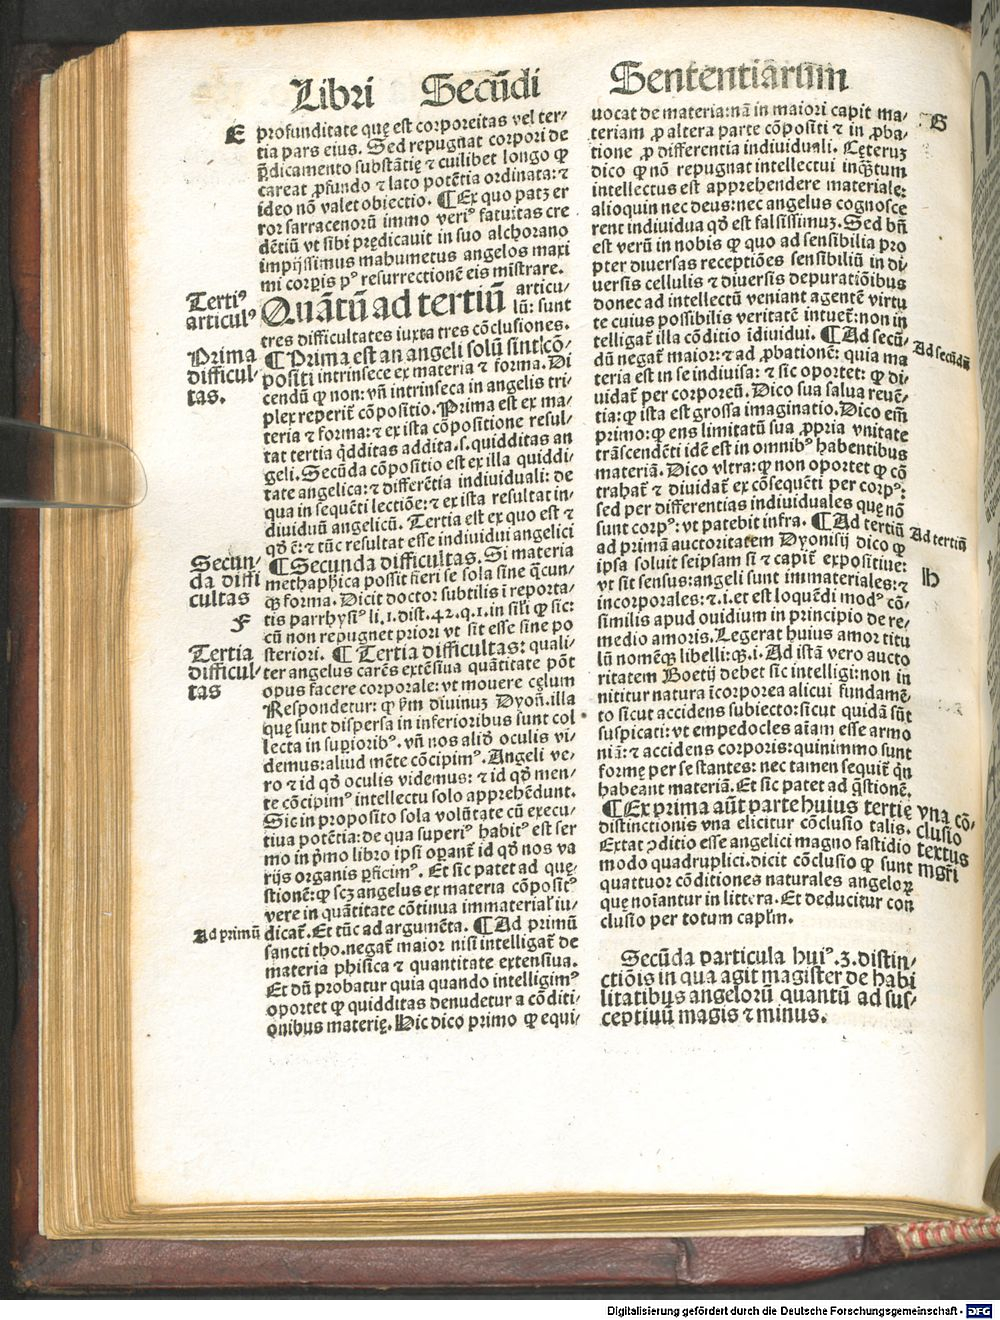 Libri Secūdi Sententiarum
E
profunditate quę est corporeitas vel ter-
tia pars eius. Sed repugnat corpori de
p̄dicamento substātię ⁊ cuilibet longo ꝙ
careat ꝓfundo ⁊ lato potētia ordinata: ⁊
ideo nō valet obiectio. ¶ Ex quo patꝫ er
ror sarracenorū immo veriꝰ fatuitas cre
dētiū vt sibi prędicauit in suo alchorano
impijssimus mahumetus angelos maxi
mi corpis pꝰ resurrectionē eis mīstrare.
Tertiꝰ
articulꝰ
Quātū ad tertiū articu-
lū: sunt
tres difficultates iuxta tres cōclusiones.
Prima
difficul-
tas.
¶ Prima est an angeli solū sint cō-
positi intrinsece ex materia ⁊ forma. Di
cendū ꝙ non: vn̄ intrinseca in angelis tri-
plex reperit̄ cōpositio. Prima est ex ma-
teria ⁊ forma: ⁊ ex ista cōpositione resul-
tat tertia q̇dditas addita .s. quidditas an
geli. Secūda cōpositio est ex illa quiddi-
tate angelica: ⁊ differētia indiuiduali: de
qua in sequēti lectiōe: ⁊ ex ista resultat in-
diuiduū angelicū. Tertia est ex quo est ⁊
qd̄ ē: ⁊ tūc resultat esse indiuidui angelici
Secun-
da diffi
cultas
F
¶ Secunda difficultas. Si materia
methaphica possit fieri se sola sine q̄cun-
qꝫ forma. Dicit doctor subtilis ī reporta-
tis parrhysiꝰ li. 1. dist. 42. q. 1. in fi ꝙ sic:
cū non repugnet priori vt sit esse sine po
Tertia
difficul-
tas
steriori. ¶ Tertia difficultas: quali-
ter angelus carēs extēsiua quātitate pōt
opus facere corporale: vt mouere cęlum
Respondetur: ꝙ ẜm diuinuꝫ Dyoñ. illa
quę sunt dispersa in inferioribus sunt col
lecta in supioribꝰ. vn̄ nos aliđ oculis vi-
demus: aliud mēte cōcipimꝰ. Angeli ve-
ro ⁊ id qđ oculis videmus: ⁊ id qđ men-
te cōcipimꝰ intellectu solo apprehēdunt.
Sic in proposito sola volūtate cū execu-
tiua potētia: de qua superiꝰ habitꝰ est ser
mo in p̄mo libro ipsi opant̄ id qđ nos va
rijs organis pficimꝰ. Et sic patet ad quę-
stionē: ꝙ scꝫ angelus ex materia cōpositꝰ
vere in quātitate cōtinua immaterial' iu-
Ad primū
dicat̄. Et tūc ad argumēta. ¶ Ad primū
sancti tho. negat̄ maior nisi intelligat̄ de
materia phisica ⁊ quantitate extensiua.
Et dū probatur quia quando intelligimꝰ
oportet ꝙ quidditas denudetur a cōditi-
onibus materię. Hic dico primo ꝙ equi-
G
uocat de materia: nā in maiori capit ma-
teriam ꝓ altera parte cōpositi ⁊ in ꝓba-
tione ꝓ differentia indiuiduali. Cęteruꝫ
dico ꝙ nō repugnat intellectui inq̄tum
intellectus est apprehendere materiale:
alioquin nec deus: nec angelus cognosce
rent indiuidua qđ est falsissimuꝫ. Sed bn̄
est verū in nobis ꝙ quo ad sensibilia pro
pter diuersas receptiōes sensibiliū in di-
uersis cellulis ⁊ diuersis depuratiōibus
donec ad intellectū veniant agentē virtu
te cuius possibilis veritatē intuet̄: non in
telligat̄ illa cōditio īdiuidui. ¶ Ad secū-
Ad secūdū
dū negat̄ maior: ⁊ ad ꝓbationē: quia ma
teria est in se indiuisa: ⁊ sic oportet: ꝙ di-
uidat̄ per corporeū. Dico sua salua reuē-
tia: ꝙ ista est grossa imaginatio. Dico em̄
primo: ꝙ ens limitatū sua ꝓpria vnitate
trāscendēti idē est in omnibꝰ habentibus
materiā. Dico vltra: ꝙ non oportet ꝙ cō
trahat̄ ⁊ diuidat̄ ex cōsequēti per corpꝰ:
sed per differentias indiuiduales quę nō
sunt corpꝰ: vt patebit infra. ¶ Ad tertiū
Ad tertiū
ad primā auctoritatem Dyonisij dico ꝙ
ipsa soluit seipsam si ⁊ capit̄ expositiue:
H
vt sit sensus: angeli sunt immateriales: ⁊
incorporales: ⁊ .i. et est loquēdi modꝰ cō-
similis apud ouidium in principio de re-
medio amoris. Legerat huius amor titu
lū nomēqꝫ libelli: qꝫ .i. Ad istā vero aucto
ritatem Boetij debet sic intelligi: non in
nititur natura īcorporea alicui fundamē-
to sicut accidens subiecto: sicut quidā sūt
suspicati: vt empedocles aīam esse armo
niā: ⁊ accidens corporis: quinimmo sunt
formę per se stantes: nec tamen sequit̄ q̇n
habeant materiā. Et sic patet ad q̄stionē.
¶ Ex prima aūt parte huius tertię
distinctionis vna elicitur cōclusio talis.
vna cō-
clusio
textus
mgr̄i
Extat ꝯditio esse angelici magno fastidio
modo quadruplici. dicit cōclusio ꝙ sunt
quattuor cōditiones naturales angeloꝝ
quę notantur in littera. Et deducitur con
clusio per totum capl'm.
Secūda particula huiꝰ. 3. distin-
ctiōis in qua agit magister de habi
litatibus angelorū quantū ad sus-
ceptiuū magis ⁊ minus.
Digitalisierung gefördert durch die Deutsche Forschungsgemeinschaft - DFG